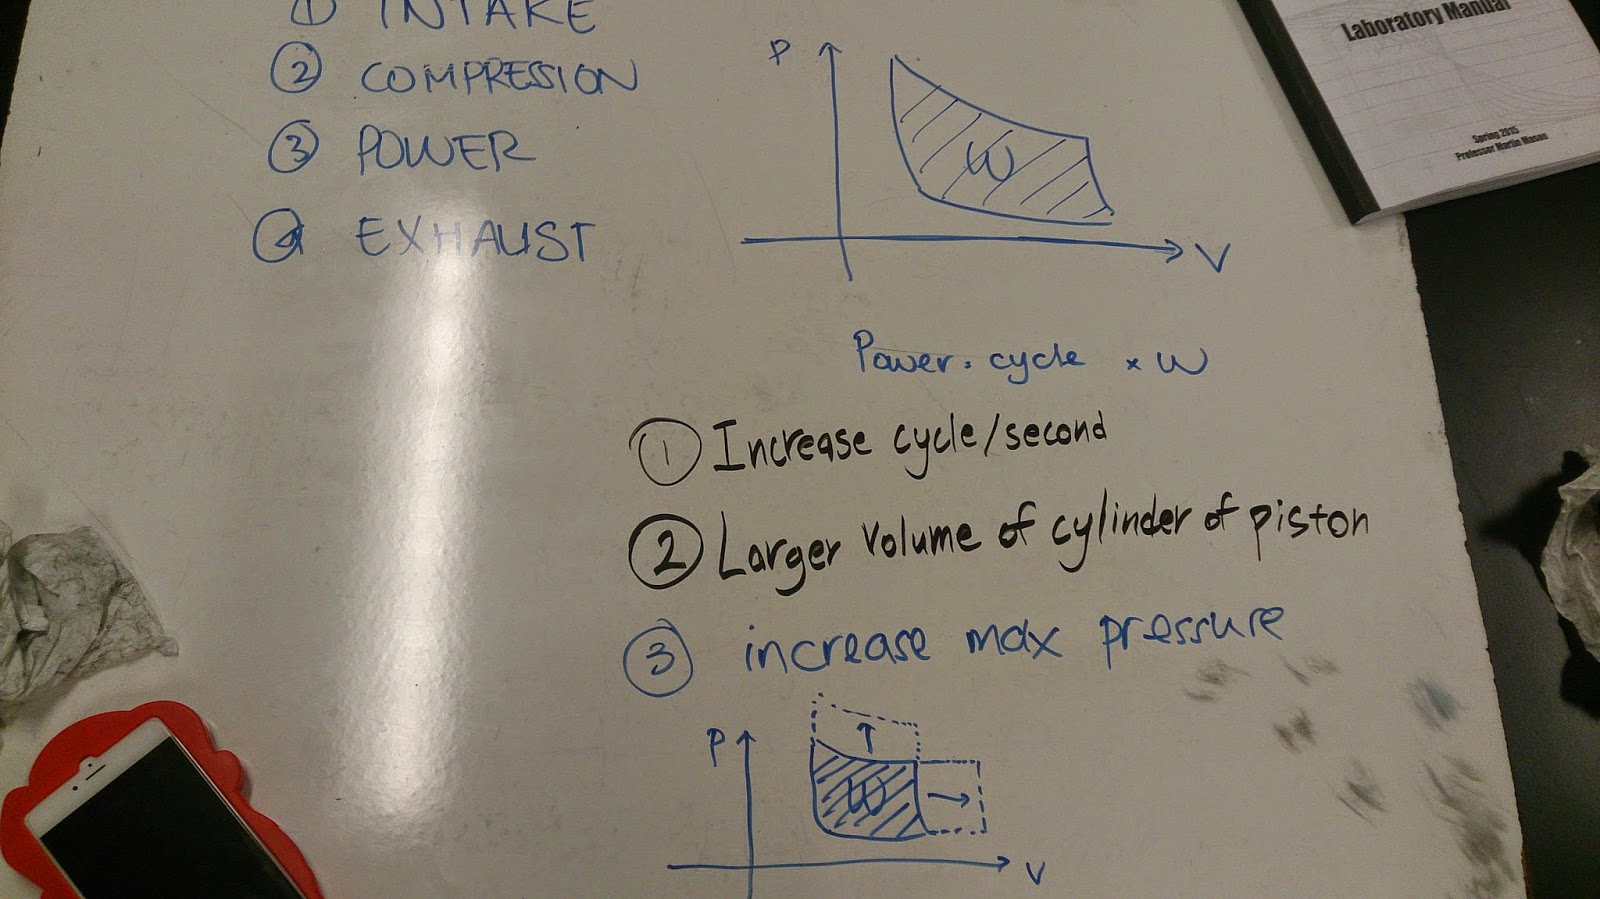 ① INTAKE
② COMPRESSION
③ POWER
④ EXHAUST
P
W
V
Power = cycle × W
① Increase cycle/second
② Larger volume of cylinder of piston
③ increase max pressure
P
W
V
Laboratory Manual
Spring 2015
Professor Martin Mason